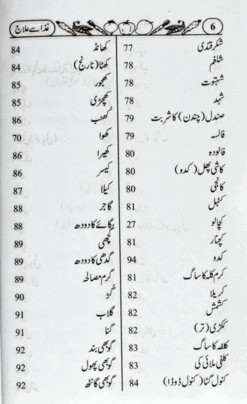 6
غذا سے علاج
شکر قندی 77
شلغم 78
شہتوت 78
شہد 78
صندل (چندن) کا شربت 79
فالسہ 79
فالودہ 80
کاشی پھل (کدو) 80
کانجی 80
کٹہل 81
کچالو 27
کچنار 81
کدو 94
کرم کلہ کا ساگ 81
کریلا 82
کشمش 82
ککڑی (تر) 82
کلفہ کا ساگ 83
کلفی ملائی کی 83
کنول گٹا (کنول ڈوڈا) 84
کھانڈ 84
کھٹا (نارنج) 84
کھجور 85
کھچڑی 85
کھنب 86
کھوا 70
کھیرا 86
کیسر 86
کیلا 87
گاجر 88
گائے کا دودھ 88
گچھی 89
گدھی کا دودھ 89
گرم مصالحہ 89
گڑ 90
گلاب 91
گنا 91
گوبھی بند 92
گوبھی پھول 92
گوبھی گانٹھ 92